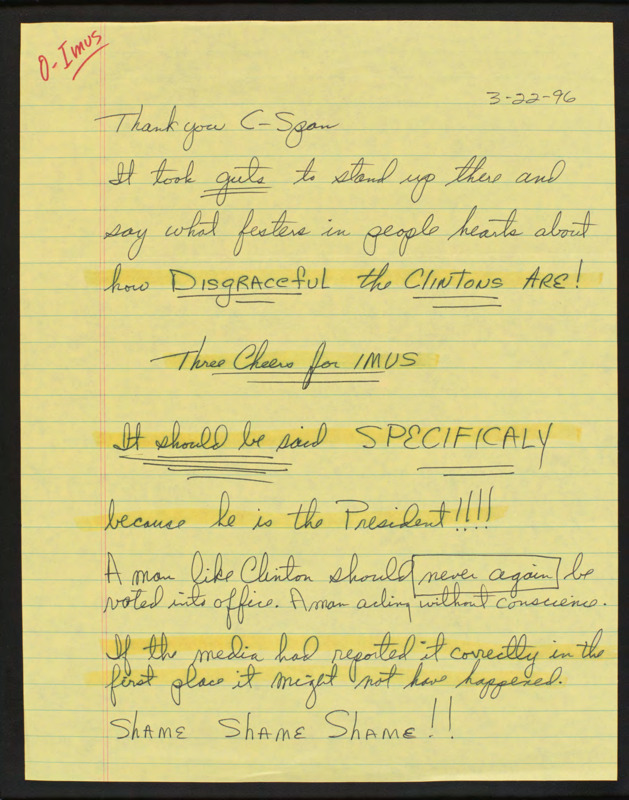 O-Imus
3-22-96
Thank you C-Span
It took guts to stand up there and
say what festers in people hearts about
how DISGRACEFUL the CLINTONS ARE!
Three Cheers for IMUS
It should be said SPECIFICALY
because he is the President!!!!
A man like Clinton should never again be
voted into office. A man acting without conscience.
If the media had reported it correctly in the
first place it might not have happened.
SHAME SHAME SHAME!!